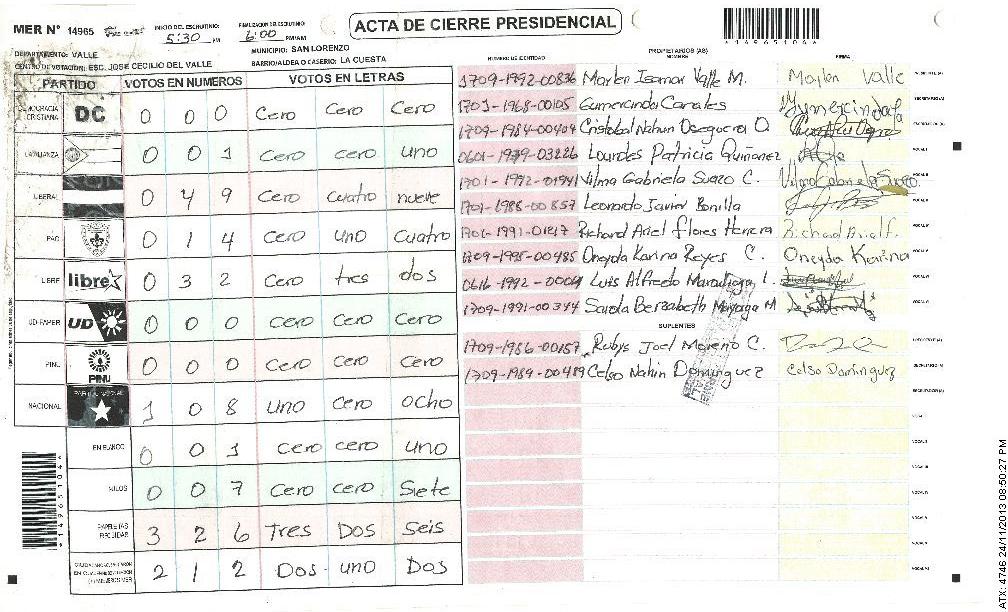 ACTA DE CIERRE PRESIDENCIAL
MER N° 14965
INICIO DEL ESCRUTINIO: 5:30 PM
FINALIZACION DEL ESCRUTINIO: 6:00 PM/AM
*14965106*
DEPARTAMENTO: VALLE
MUNICIPIO: SAN LORENZO
CENTRO DE VOTACION: ESC. JOSE CECILIO DEL VALLE
BARRIO/ALDEA O CASERIO: LA CUESTA
PARTIDO VOTOS EN NUMEROS VOTOS EN LETRAS
DEMOCRACIA CRISTIANA DC 0 0 0 Cero Cero Cero
LA ALIANZA 0 0 1 Cero cero uno
LIBERAL 0 4 9 Cero cuatro nueve
PAC 0 1 4 Cero uno cuatro
LIBRE libre 0 3 2 Cero tres dos
UD-FAPER UD 0 0 0 Cero Cero Cero
PINU PINU 0 0 0 Cero Cero Cero
NACIONAL PARTIDO NACIONAL 1 0 8 uno cero ocho
EN BLANCO 0 0 1 cero cero uno
NULOS 0 0 7 Cero cero Siete
PAPELETAS RECIBIDAS 3 2 6 Tres Dos seis
2 1 2 Dos uno Dos
NUMERO DE IDENTIDAD PROPIETARIOS (AS) NOMBRE FIRMA
1709-1992-00836 Marlen Isamar Valle M. Marlen Valle
1701-1968-00105 Gumercinda Canales
1709-1984-00404 Cristobal Nahun Oseguera O.
0601-1979-03226 Lourdes Patricia Quiñonez
1701-1992-01941 Vilma Gabriela Suazo C.
1701-1988-00857 Leonardo Javier Bonilla
Richard Ariel flores Herrera
1709-1995-00485 Oneyda Karina Reyes C. Oneyda Karina
Luis Alfredo
1709-1991-00344
SUPLENTES
1709-1986-00157 Rubys Joel Moreno C.
1709-1989-00489 Celso Nahin Dominguez Celso Dominguez
*14965104*
ATX: 4746 24/11/2013 08:50:27 PM